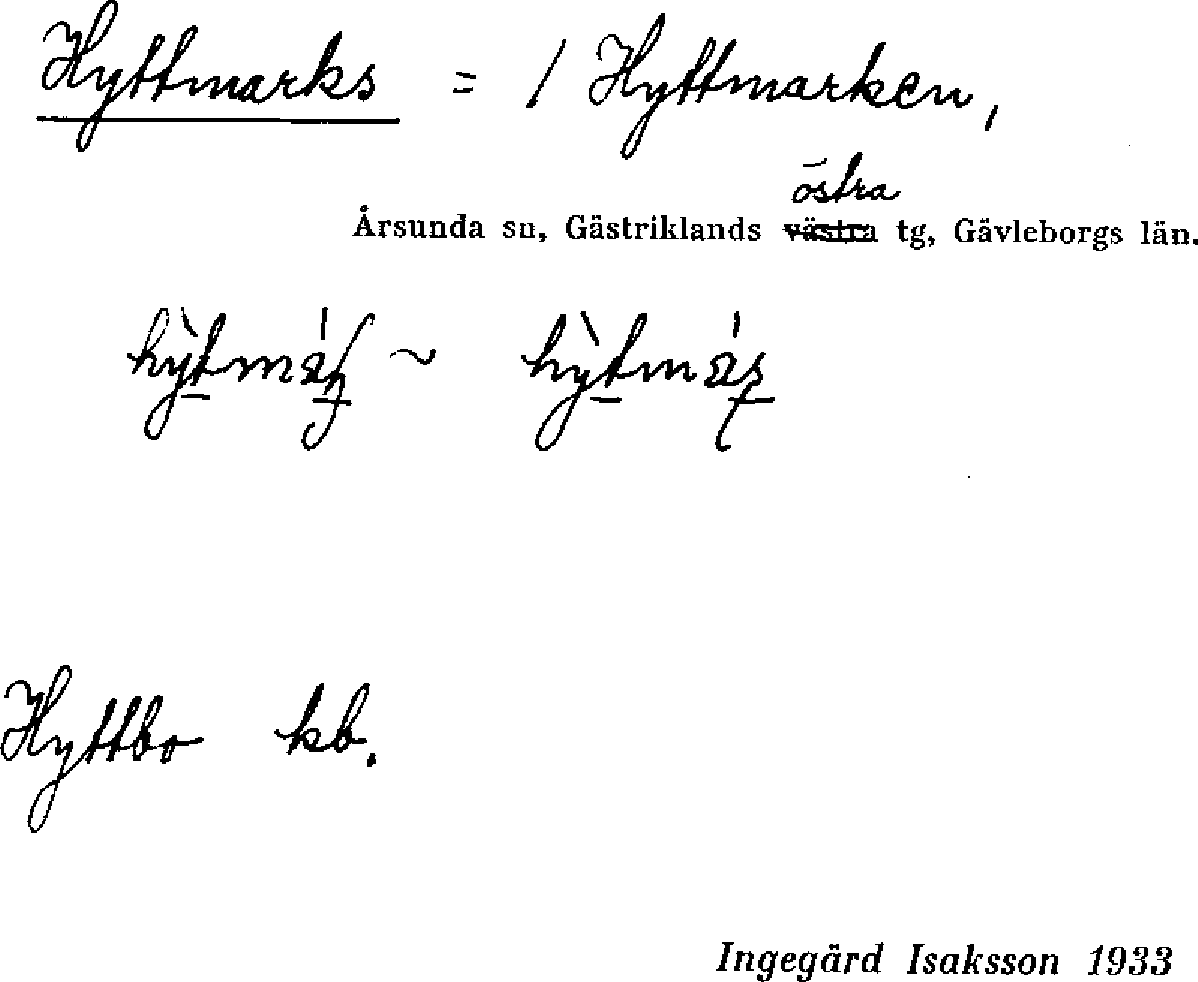 Hyttmarks = / Hyttmarken,
östra
Årsunda sn, Gästriklands västra tg, Gävleborgs län.
~
Hyttbo kb.
Ingegärd Isaksson 1933